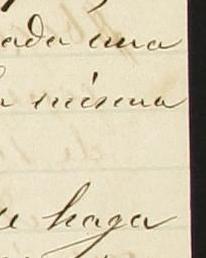 ada una
misma
e haga